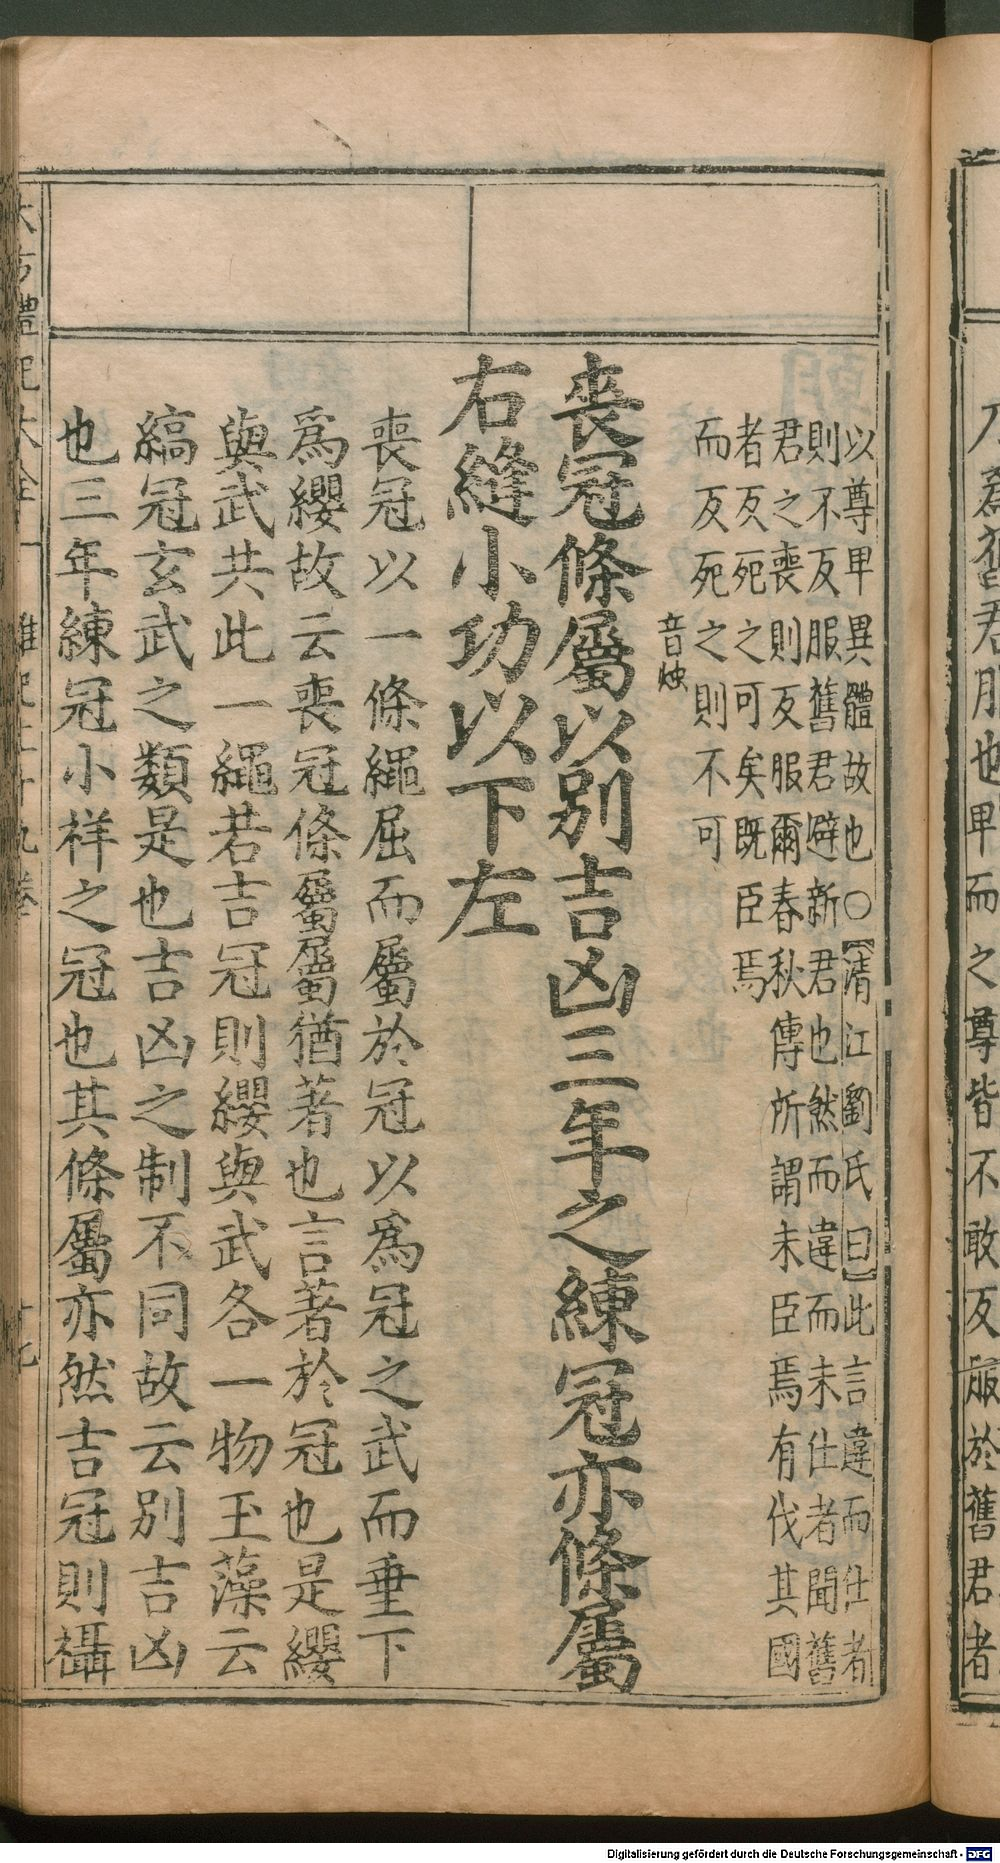 以尊卑異體故也〇【清江劉氏曰】此言違而仕者
則不反服舊君避新君也然而違而未仕者聞舊
君之喪則反服爾春秋傳所謂未臣焉有伐其國
者反死之可矣既臣焉
而反死之則不可
音燭
喪冠條屬以別吉凶三年之練冠亦條屬
右縫小功以下左
喪冠以一條繩屈而屬於冠以爲冠之武而垂下
爲纓故云喪冠條屬屬猶著也言著於冠也是纓
與武共此一繩若吉冠則纓與武各一物玉藻云
縞冠玄武之類是也吉凶之制不同故云別吉凶
也三年練冠小祥之冠也其條屬亦然吉冠則攝
而之尊皆不敢反服於舊君者
Digitalisierung gefördert durch die Deutsche Forschungsgemeinschaft - DFG